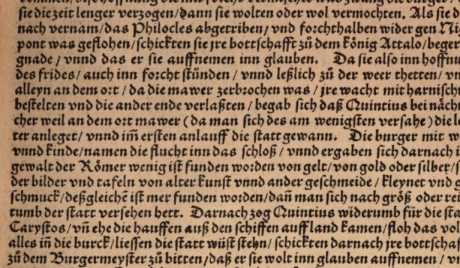 sie die zeit lenger verzogen/dann sie wolten oder wol vermochten. Als sie d
nach vernam/das Philocles abgetriben/vnd forchthalben wider gen Ni
pont was geflohen/schickten sie jre bottschafft zů dem König Attalo/beger
gnade/vnnd das er sie auffnemen inn glauben. Da sie also inn hoffnu
des frides/auch inn forcht stůnden/vnnd leßlich zů der weer thetten/vn
alleyn an dem ort/da die mawer zerbrochen was/jre wacht mit harnisch
bestelten vnd die ander ende verlaßten/begab sich daß Quintius bei nächt
cher weil an dem ort mawer (da man sich des am wenigsten versahe) die le
ter anleget/vnnd im̄ ersten anlauff die statt gewann. Die burger mit w
vnnd kinde/namen die flucht inn das schloß/vnnd ergaben sich darnach i
gewalt der Römer wenig ist funden worden von gelt/von gold oder silber/
der bilder vnd tafeln von alter kunst vnnd ander geschmeide/kleynet vnd g
schmuck/deßgleichē ist mer funden worden/dañ man sich nach größ oder rei
tumb der statt versehen hett. Darnach zog Quintius widerumb für die sta
Carystos/vñ ehe die hauffen auß den schiffen auff land kamen/floh das vol
alles iñ die burck/liessen die statt wüst stehn/schickten darnach jre bottschaf
zů dem Burgermeyster zů bitten/daß er sie wolt inn glauben auffnemen/vn